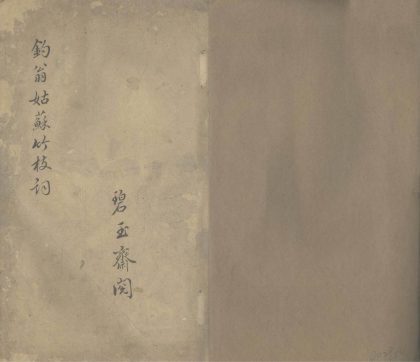 釣翁姑蘇竹枝詞
碧玉齋閱